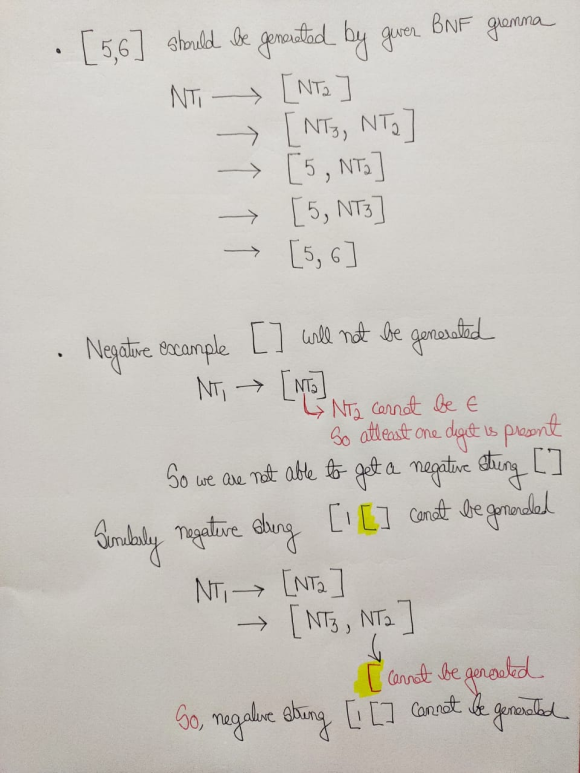 . [5,6] should be generated by given BNF gramma
NT1 → [NT2]
→ [NT3, NT2]
→ [5, NT2]
→ [5, NT3]
→ [5, 6]
. Negative example [ ] will not be generated
NT1 → [NT2]
↳ NT2 cannot be ∈
So atleast one digit is present
So we are not able to get a negative string [ ]
Similarly negative string [1 [ ] cannot be generated
NT1 → [NT2]
→ [NT3, NT2]
↓
[ cannot be generated
So, negative string [1 [ ] cannot be generated